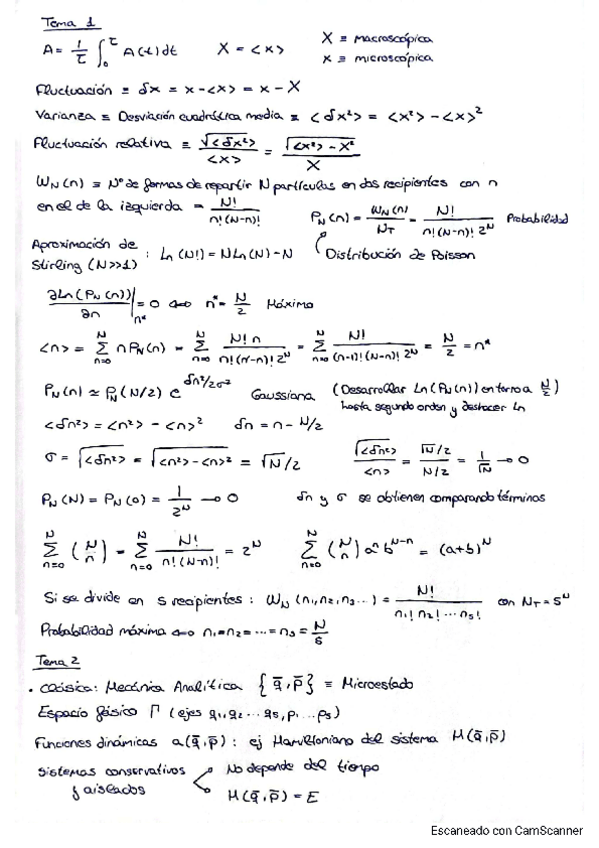 Tema 1
A = 1/τ ∫₀^τ A(t)dt   X = <x>   X ≡ macroscópica
x ≡ microscópica
Fluctuación ≡ δx = x - <x> = x - X
Varianza ≡ Desviación cuadrática media ≡ <δx²> = <x²> - <x>²
Fluctuación relativa ≡ √<δx²> / <x> = √(<x²> - X²) / X
W_N(n) ≡ Nº de formas de repartir N partículas en dos recipientes con n
en el de la izquierda = N! / n!(N-n)!   P_N(n) = W_N(n) / N_T = N! / n!(N-n)! 2^N   Probabilidad
Aproximación de Stirling (N>>1) : Ln(N!) = N Ln(N) - N   Distribución de Poisson
∂Ln(P_N(n))/∂n |_n* = 0 ⇔ n* = N/2   Máximo
<n> = Σ_{n=0}^N n P_N(n) = Σ_{n=0}^N N! n / n!(N-n)! 2^N = Σ_{n=0}^N N! / (n-1)!(N-n)! 2^N = N/2 = n*
P_N(n) ≃ P_N(N/2) e^{δn²/2σ²}   Gaussiana   (Desarrollar Ln(P_N(n)) en torno a N/2)
hasta segundo orden y deshacer Ln
<δn²> = <n²> - <n>²   δn = n - N/2
σ = √<δn²> = √(<n²> - <n>²) = √N/2   √<δn²> / <n> = (√N/2) / (N/2) = 1/√N → 0
P_N(N) = P_N(0) = 1/2^N → 0   δn y σ se obtienen comparando términos
Σ_{n=0}^N (N n) = Σ_{n=0}^N N! / n!(N-n)! = 2^N   Σ_{n=0}^N (N n) a^n b^{N-n} = (a+b)^N
Si se divide en s recipientes : W_N(n₁,n₂,n₃...) = N! / n₁! n₂! ... n_s!   con N_T = s^N
Probabilidad máxima ⇔ n₁=n₂=...=n_s = N/s
Tema 2
• Clásica: Mecánica Analítica {q̄,p̄} ≡ Microestado
Espacio fásico Γ (ejes q₁,q₂...q_s,p₁...p_s)
Funciones dinámicas a(q̄,p̄) : ej Hamiltoniano del sistema H(q̄,p̄)
Sistemas conservativos y aislados   No depende del tiempo
H(q̄,p̄) = E
Escaneado con CamScanner